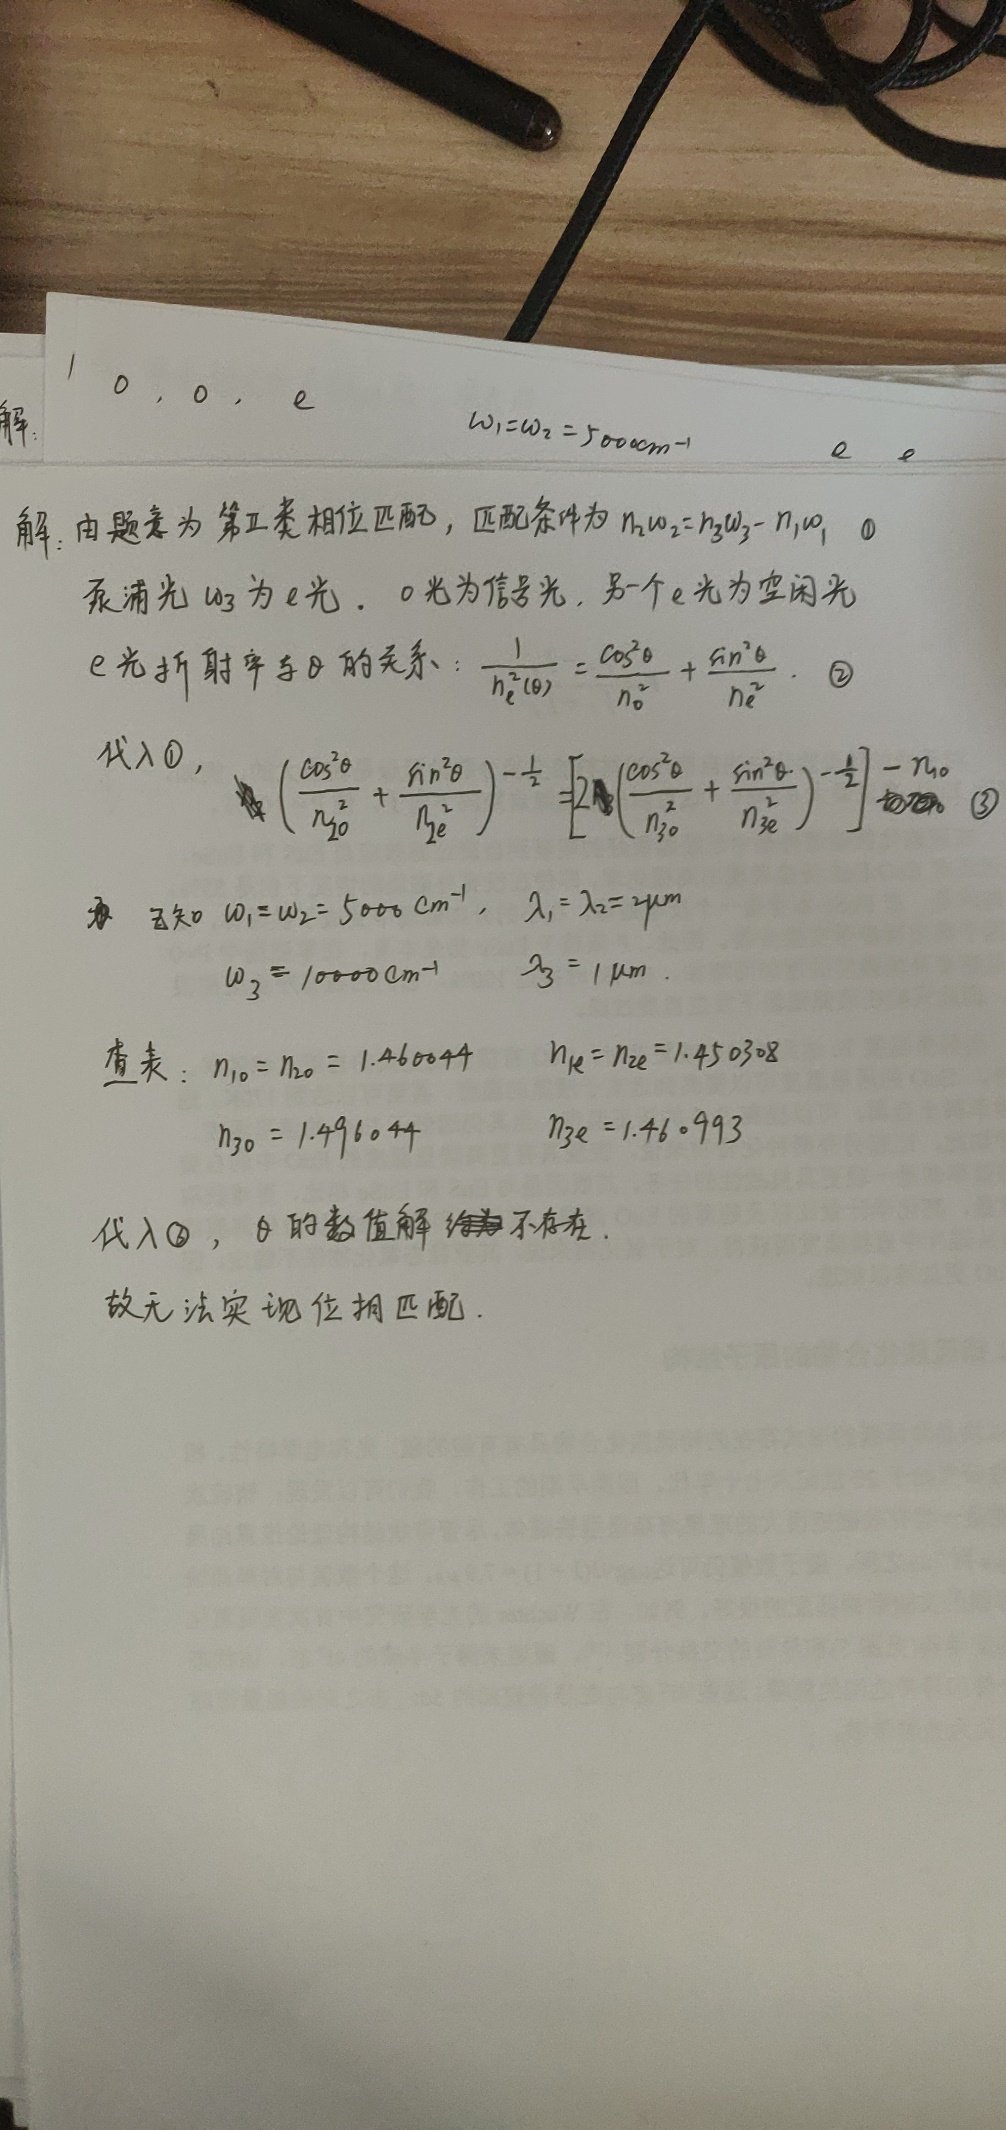 1 o , o , e
解:
ω₁=ω₂=5000cm⁻¹ e e
解:由题意为第Ⅱ类相位匹配,匹配条件为 n₂ω₂=n₃ω₃-n₁ω₁ ①
泵浦光 ω₃为e光. o光为信号光,另一个e光为空闲光
e光折射率与θ的关系: 1/nₑ²(θ) = cos²θ/n₀² + sin²θ/nₑ² . ②
代入①,
(cos²θ/n₂ₒ² + sin²θ/n₂ₑ²)^(-1/2) = [2(cos²θ/n₃ₒ² + sin²θ/n₃ₑ²)^(-1/2)] - n₁ₒ ③
已知 ω₁=ω₂=5000cm⁻¹, λ₁=λ₂=2μm
ω₃=10000cm⁻¹ λ₃=1μm.
查表: n₁ₒ=n₂ₒ=1.460044 n₁ₑ=n₂ₑ=1.450308
n₃ₒ=1.496044 n₃ₑ=1.460993
代入③, θ的数值解 不存在.
故无法实现位相匹配.